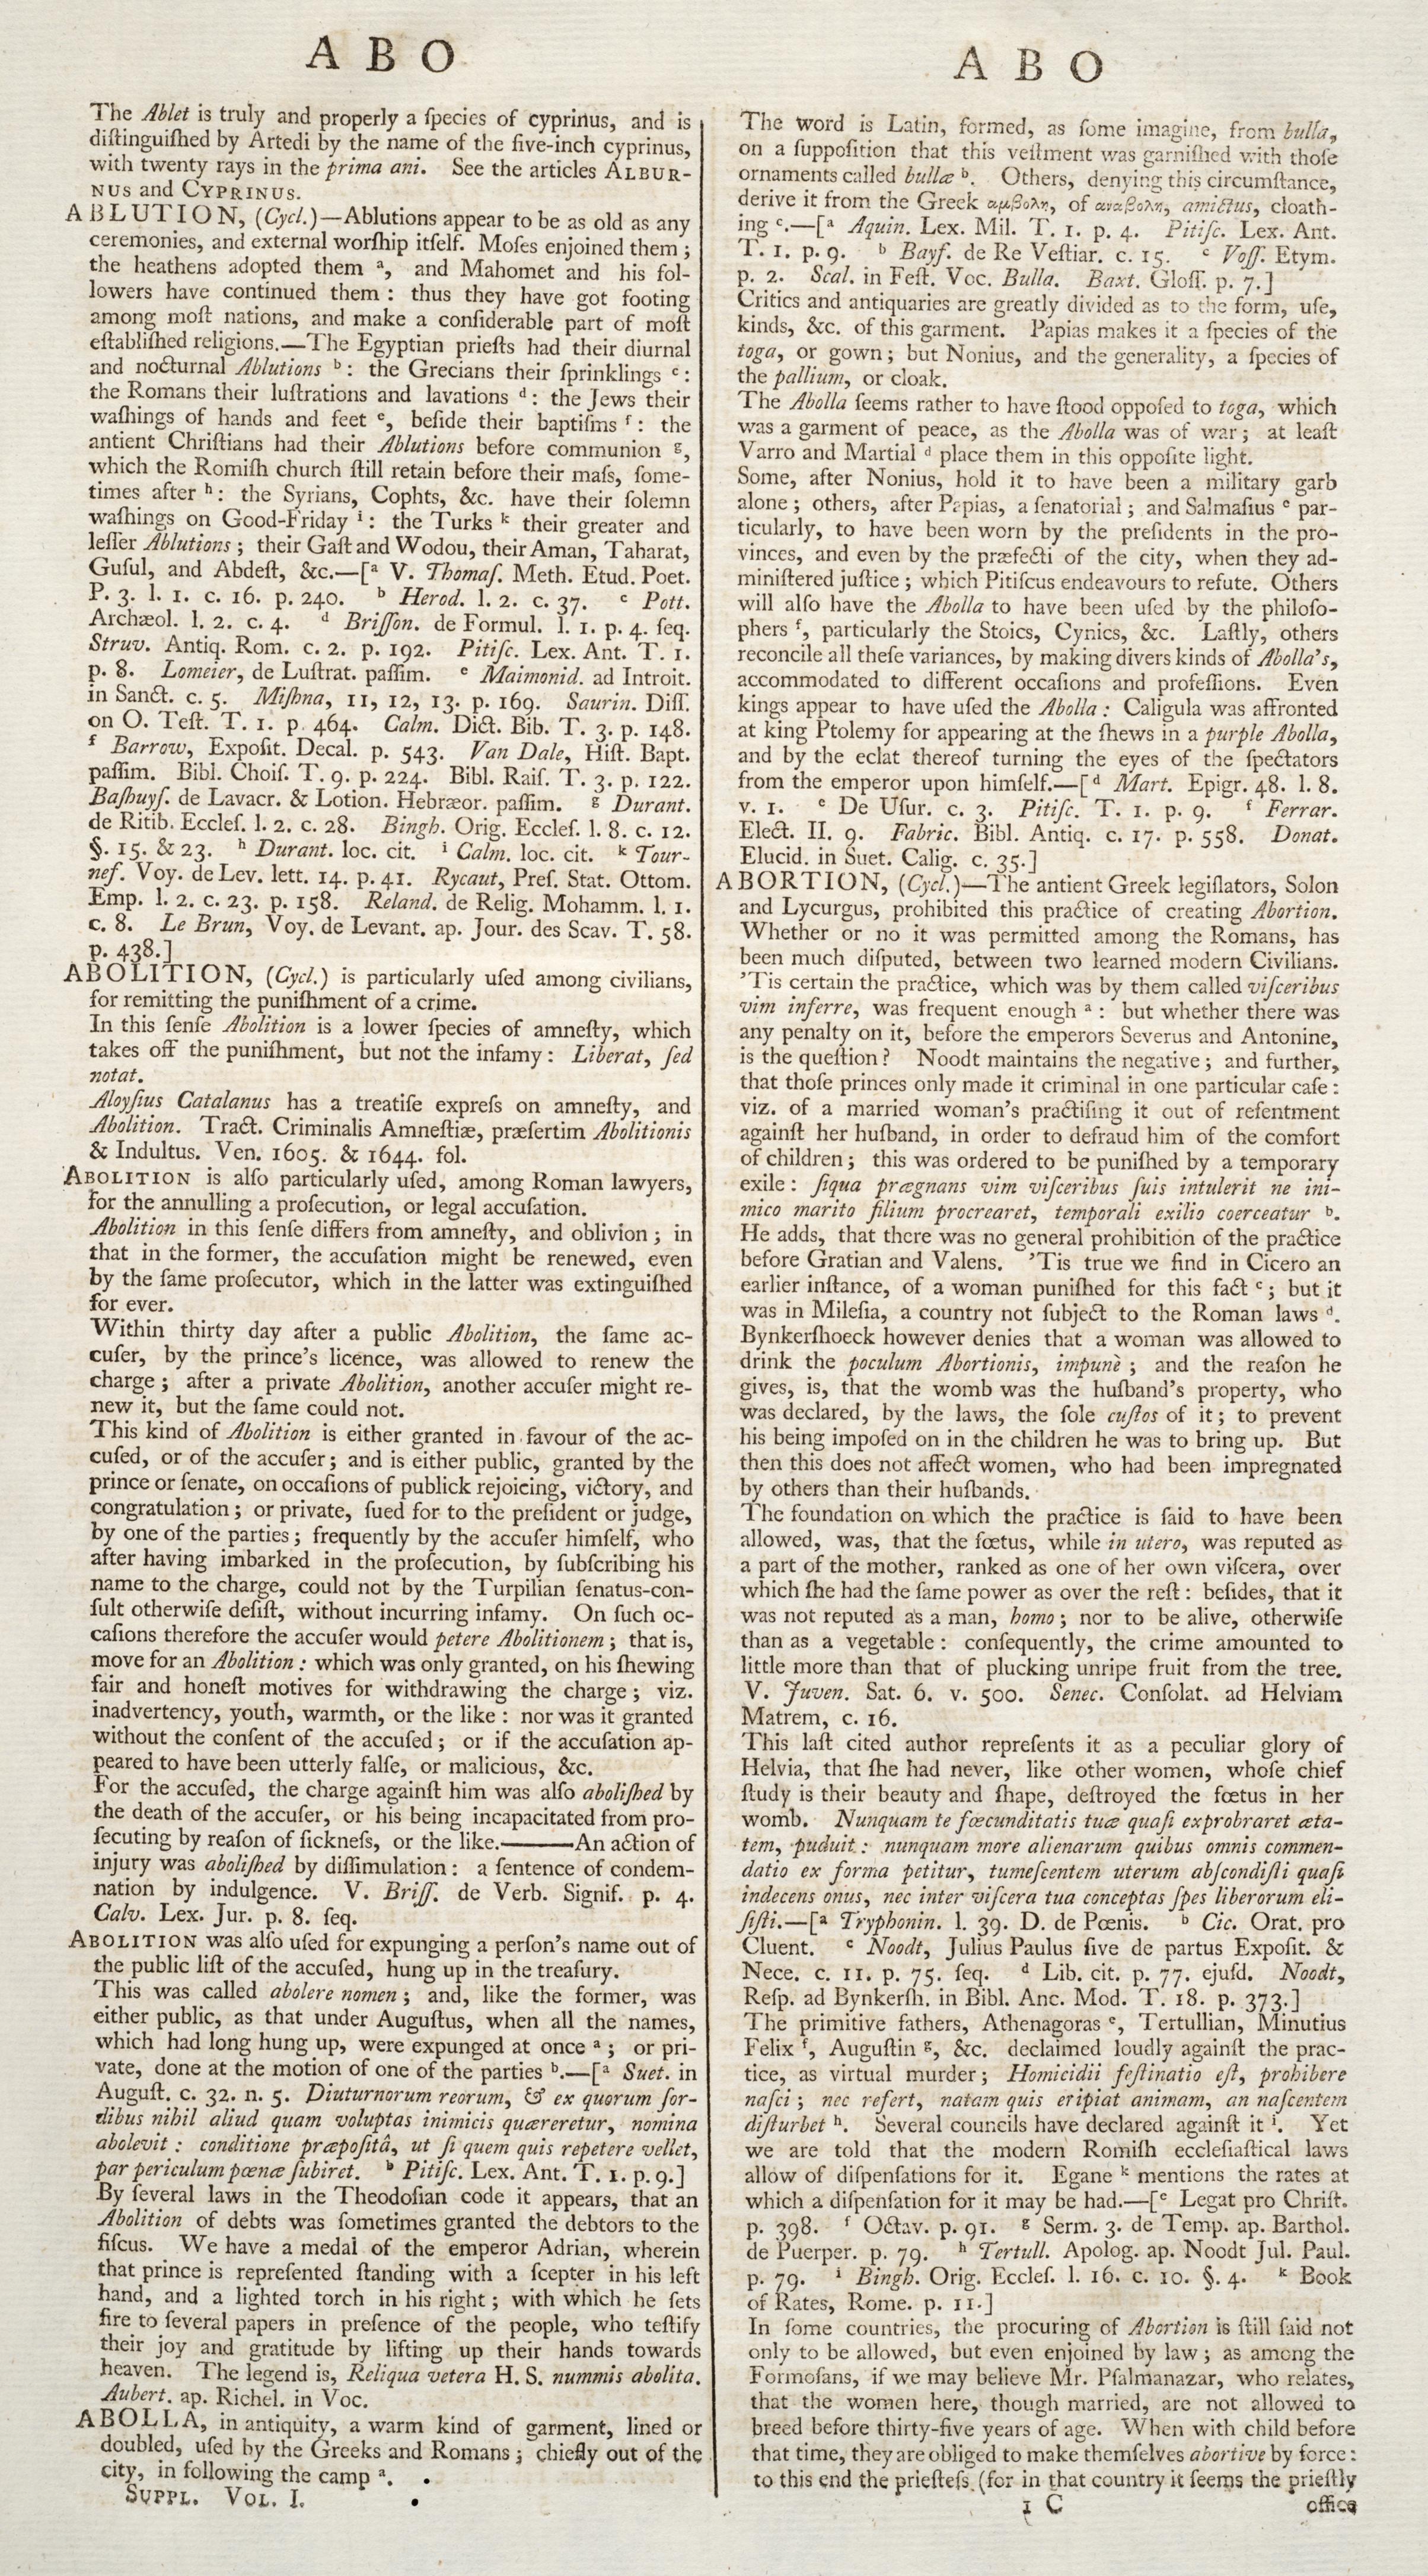 A B O
The Ablet is truly and properly a ſpecies of cyprinus, and is
diſtinguiſhed by Artedi by the name of the five-inch cyprinus,
with twenty rays in the prima ani. See the articles ALBUR-
NUS and CYPRINUS.
ABLUTION, (Cycl.)—Ablutions appear to be as old as any
ceremonies, and external worſhip itſelf. Moſes enjoined them;
the heathens adopted them ª, and Mahomet and his fol-
lowers have continued them: thus they have got footing
among moſt nations, and make a conſiderable part of moſt
eſtabliſhed religions.—The Egyptian prieſts had their diurnal
and nocturnal Ablutions ᵇ: the Grecians their ſprinklings ᶜ:
the Romans their luſtrations and lavations ᵈ: the Jews their
waſhings of hands and feet ᵉ, beſide their baptiſms ᶠ: the
antient Chriſtians had their Ablutions before communion ᵍ,
which the Romiſh church ſtill retain before their maſs, ſome-
times after ʰ: the Syrians, Cophts, &c. have their ſolemn
waſhings on Good-Friday ⁱ: the Turks ᵏ their greater and
leſſer Ablutions; their Gaſt and Wodou, their Aman, Taharat,
Guſul, and Abdeſt, &c.—[ª V. Thomaſ. Meth. Etud. Poet.
P. 3. l. 1. c. 16. p. 240. ᵇ Herod. l. 2. c. 37. ᶜ Pott.
Archæol. l. 2. c. 4. ᵈ Briſſon. de Formul. l. 1. p. 4. ſeq.
Struv. Antiq. Rom. c. 2. p. 192. Pitiſc. Lex. Ant. T. 1.
p. 8. Lomeier, de Luſtrat. paſſim. ᵉ Maimonid. ad Introit.
in Sanct. c. 5. Miſhna, 11, 12, 13. p. 169. Saurin. Diſſ.
on O. Teſt. T. 1. p. 464. Calm. Dict. Bib. T. 3. p. 148.
ᶠ Barrow, Expoſit. Decal. p. 543. Van Dale, Hiſt. Bapt.
paſſim. Bibl. Choiſ. T. 9. p. 224. Bibl. Raiſ. T. 3. p. 122.
Baſhuyſ. de Lavacr. & Lotion. Hebræor. paſſim. ᵍ Durant.
de Ritib. Eccleſ. l. 2. c. 28. Bingh. Orig. Eccleſ. l. 8. c. 12.
§. 15. & 23. ʰ Durant. loc. cit. ⁱ Calm. loc. cit. ᵏ Tour-
nef. Voy. de Lev. lett. 14. p. 41. Rycaut, Preſ. Stat. Ottom.
Emp. l. 2. c. 23. p. 158. Reland. de Relig. Mohamm. l. 1.
c. 8. Le Brun, Voy. de Levant. ap. Jour. des Scav. T. 58.
p. 438.]
ABOLITION, (Cycl.) is particularly uſed among civilians,
for remitting the puniſhment of a crime.
In this ſenſe Abolition is a lower ſpecies of amneſty, which
takes off the puniſhment, but not the infamy: Liberat, ſed
notat.
Aloyſius Catalanus has a treatiſe expreſs on amneſty, and
Abolition. Tract. Criminalis Amneſtiæ, præſertim Abolitionis
& Indultus. Ven. 1605. & 1644. fol.
ABOLITION is alſo particularly uſed, among Roman lawyers,
for the annulling a proſecution, or legal accuſation.
Abolition in this ſenſe differs from amneſty, and oblivion; in
that in the former, the accuſation might be renewed, even
by the ſame proſecutor, which in the latter was extinguiſhed
for ever.
Within thirty day after a public Abolition, the ſame ac-
cuſer, by the prince's licence, was allowed to renew the
charge; after a private Abolition, another accuſer might re-
new it, but the ſame could not.
This kind of Abolition is either granted in favour of the ac-
cuſed, or of the accuſer; and is either public, granted by the
prince or ſenate, on occaſions of publick rejoicing, victory, and
congratulation; or private, ſued for to the preſident or judge,
by one of the parties; frequently by the accuſer himſelf, who
after having imbarked in the proſecution, by ſubſcribing his
name to the charge, could not by the Turpilian ſenatus-con-
ſult otherwiſe deſiſt, without incurring infamy. On ſuch oc-
caſions therefore the accuſer would petere Abolitionem; that is,
move for an Abolition: which was only granted, on his ſhewing
fair and honeſt motives for withdrawing the charge; viz.
inadvertency, youth, warmth, or the like: nor was it granted
without the conſent of the accuſed; or if the accuſation ap-
peared to have been utterly falſe, or malicious, &c.
For the accuſed, the charge againſt him was alſo aboliſhed by
the death of the accuſer, or his being incapacitated from pro-
ſecuting by reaſon of ſickneſs, or the like.———An action of
injury was aboliſhed by diſſimulation: a ſentence of condem-
nation by indulgence. V. Briſſ. de Verb. Signif. p. 4.
Calv. Lex. Jur. p. 8. ſeq.
ABOLITION was alſo uſed for expunging a perſon's name out of
the public liſt of the accuſed, hung up in the treaſury.
This was called abolere nomen; and, like the former, was
either public, as that under Auguſtus, when all the names,
which had long hung up, were expunged at once ª; or pri-
vate, done at the motion of one of the parties ᵇ.—[ª Suet. in
Auguſt. c. 32. n. 5. Diuturnorum reorum, & ex quorum ſor-
dibus nihil aliud quam voluptas inimicis quæreretur, nomina
abolevit: conditione præpoſitâ, ut ſi quem quis repetere vellet,
par periculum pœnæ ſubiret. ᵇ Pitiſc. Lex. Ant. T. 1. p. 9.]
By ſeveral laws in the Theodoſian code it appears, that an
Abolition of debts was ſometimes granted the debtors to the
fiſcus. We have a medal of the emperor Adrian, wherein
that prince is repreſented ſtanding with a ſcepter in his left
hand, and a lighted torch in his right; with which he ſets
fire to ſeveral papers in preſence of the people, who teſtify
their joy and gratitude by lifting up their hands towards
heaven. The legend is, Reliqua vetera H. S. nummis abolita.
Aubert. ap. Richel. in Voc.
ABOLLA, in antiquity, a warm kind of garment, lined or
doubled, uſed by the Greeks and Romans; chiefly out of the
city, in following the camp ª.
SUPPL. VOL. I.
A B O
The word is Latin, formed, as ſome imagine, from bulla,
on a ſuppoſition that this veſtment was garniſhed with thoſe
ornaments called bullæ ᵇ. Others, denying this circumſtance,
derive it from the Greek αμβολη, of αναβολη, amictus, cloath-
ing ᶜ.—[ª Aquin. Lex. Mil. T. 1. p. 4. Pitiſc. Lex. Ant.
T. 1. p. 9. ᵇ Bayſ. de Re Veſtiar. c. 15. ᶜ Voſſ. Etym.
p. 2. Scal. in Feſt. Voc. Bulla. Baxt. Gloſſ. p. 7.]
Critics and antiquaries are greatly divided as to the form, uſe,
kinds, &c. of this garment. Papias makes it a ſpecies of the
toga, or gown; but Nonius, and the generality, a ſpecies of
the pallium, or cloak.
The Abolla ſeems rather to have ſtood oppoſed to toga, which
was a garment of peace, as the Abolla was of war; at leaſt
Varro and Martial ᵈ place them in this oppoſite light.
Some, after Nonius, hold it to have been a military garb
alone; others, after Papias, a ſenatorial; and Salmaſius ᵉ par-
ticularly, to have been worn by the preſidents in the pro-
vinces, and even by the præfecti of the city, when they ad-
miniſtered juſtice; which Pitiſcus endeavours to refute. Others
will alſo have the Abolla to have been uſed by the philoſo-
phers ᶠ, particularly the Stoics, Cynics, &c. Laſtly, others
reconcile all theſe variances, by making divers kinds of Abolla's,
accommodated to different occaſions and profeſſions. Even
kings appear to have uſed the Abolla: Caligula was affronted
at king Ptolemy for appearing at the ſhews in a purple Abolla,
and by the eclat thereof turning the eyes of the ſpectators
from the emperor upon himſelf.—[ᵈ Mart. Epigr. 48. l. 8.
v. 1. ᵉ De Uſur. c. 3. Pitiſc. T. 1. p. 9. ᶠ Ferrar.
Elect. II. 9. Fabric. Bibl. Antiq. c. 17. p. 558. Donat.
Elucid. in Suet. Calig. c. 35.]
ABORTION, (Cycl.)—The antient Greek legiſlators, Solon
and Lycurgus, prohibited this practice of creating Abortion.
Whether or no it was permitted among the Romans, has
been much diſputed, between two learned modern Civilians.
'Tis certain the practice, which was by them called viſceribus
vim inferre, was frequent enough ª: but whether there was
any penalty on it, before the emperors Severus and Antonine,
is the queſtion? Noodt maintains the negative; and further,
that thoſe princes only made it criminal in one particular caſe:
viz. of a married woman's practiſing it out of reſentment
againſt her huſband, in order to defraud him of the comfort
of children; this was ordered to be puniſhed by a temporary
exile: ſiqua prægnans vim viſceribus ſuis intulerit ne ini-
mico marito filium procrearet, temporali exilio coerceatur ᵇ.
He adds, that there was no general prohibition of the practice
before Gratian and Valens. 'Tis true we find in Cicero an
earlier inſtance, of a woman puniſhed for this fact ᶜ; but it
was in Mileſia, a country not ſubject to the Roman laws ᵈ.
Bynkerſhoeck however denies that a woman was allowed to
drink the poculum Abortionis, impunè; and the reaſon he
gives, is, that the womb was the huſband's property, who
was declared, by the laws, the ſole cuſtos of it; to prevent
his being impoſed on in the children he was to bring up. But
then this does not affect women, who had been impregnated
by others than their huſbands.
The foundation on which the practice is ſaid to have been
allowed, was, that the fœtus, while in utero, was reputed as
a part of the mother, ranked as one of her own viſcera, over
which ſhe had the ſame power as over the reſt: beſides, that it
was not reputed as a man, homo; nor to be alive, otherwiſe
than as a vegetable: conſequently, the crime amounted to
little more than that of plucking unripe fruit from the tree.
V. Juven. Sat. 6. v. 500. Senec. Conſolat. ad Helviam
Matrem, c. 16.
This laſt cited author repreſents it as a peculiar glory of
Helvia, that ſhe had never, like other women, whoſe chief
ſtudy is their beauty and ſhape, deſtroyed the fœtus in her
womb. Nunquam te fœcunditatis tuæ quaſi exprobraret æta-
tem, puduit: nunquam more alienarum quibus omnis commen-
datio ex forma petitur, tumeſcentem uterum abſcondiſti quaſi
indecens onus, nec inter viſcera tua conceptas ſpes liberorum eli-
ſiſti.—[ª Tryphonin. l. 39. D. de Pœnis. ᵇ Cic. Orat. pro
Cluent. ᶜ Noodt, Julius Paulus ſive de partus Expoſit. &
Nece. c. 11. p. 75. ſeq. ᵈ Lib. cit. p. 77. ejuſd. Noodt,
Reſp. ad Bynkerſh. in Bibl. Anc. Mod. T. 18. p. 373.]
The primitive fathers, Athenagoras ᵉ, Tertullian, Minutius
Felix ᶠ, Auguſtin ᵍ, &c. declaimed loudly againſt the prac-
tice, as virtual murder; Homicidii feſtinatio eſt, prohibere
naſci; nec refert, natam quis eripiat animam, an naſcentem
diſturbet ʰ. Several councils have declared againſt it ⁱ. Yet
we are told that the modern Romiſh eccleſiaſtical laws
allow of diſpenſations for it. Egane ᵏ mentions the rates at
which a diſpenſation for it may be had.—[ᵉ Legat pro Chriſt.
p. 398. ᶠ Octav. p. 91. ᵍ Serm. 3. de Temp. ap. Barthol.
de Puerper. p. 79. ʰ Tertull. Apolog. ap. Noodt Jul. Paul.
p. 79. ⁱ Bingh. Orig. Eccleſ. l. 16. c. 10. §. 4. ᵏ Book
of Rates, Rome. p. 11.]
In ſome countries, the procuring of Abortion is ſtill ſaid not
only to be allowed, but even enjoined by law; as among the
Formoſans, if we may believe Mr. Pſalmanazar, who relates,
that the women here, though married, are not allowed to
breed before thirty-five years of age. When with child before
that time, they are obliged to make themſelves abortive by force:
to this end the prieſteſs (for in that country it ſeems the prieſtly
1 C
office